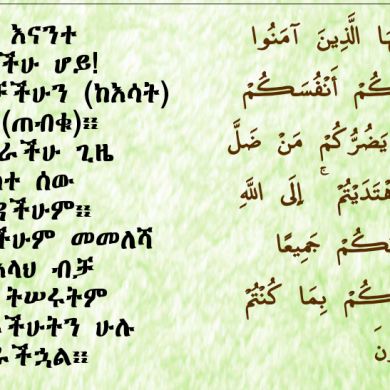 እናንተ
ችሁ ሆይ!
ችሁን (ከእሳት)
(ጠብቁ)፡፡
ራችሁ ጊዜ
ተ ሰው
ችሁም፡፡
ችሁም መመለሻ
አላህ ብቻ
ትሠሩትም
ችሁትን ሁሉ
ራችኋል፡፡
هَا الَّذِينَ آمَنُوا
كُمْ أَنْفُسَكُمْ
يَضُرُّكُمْ مَنْ ضَلَّ
هْتَدَيْتُمْ ۚ إِلَى اللَّهِ
كُمْ جَمِيعًا
كُمْ بِمَا كُنْتُمْ
نَ